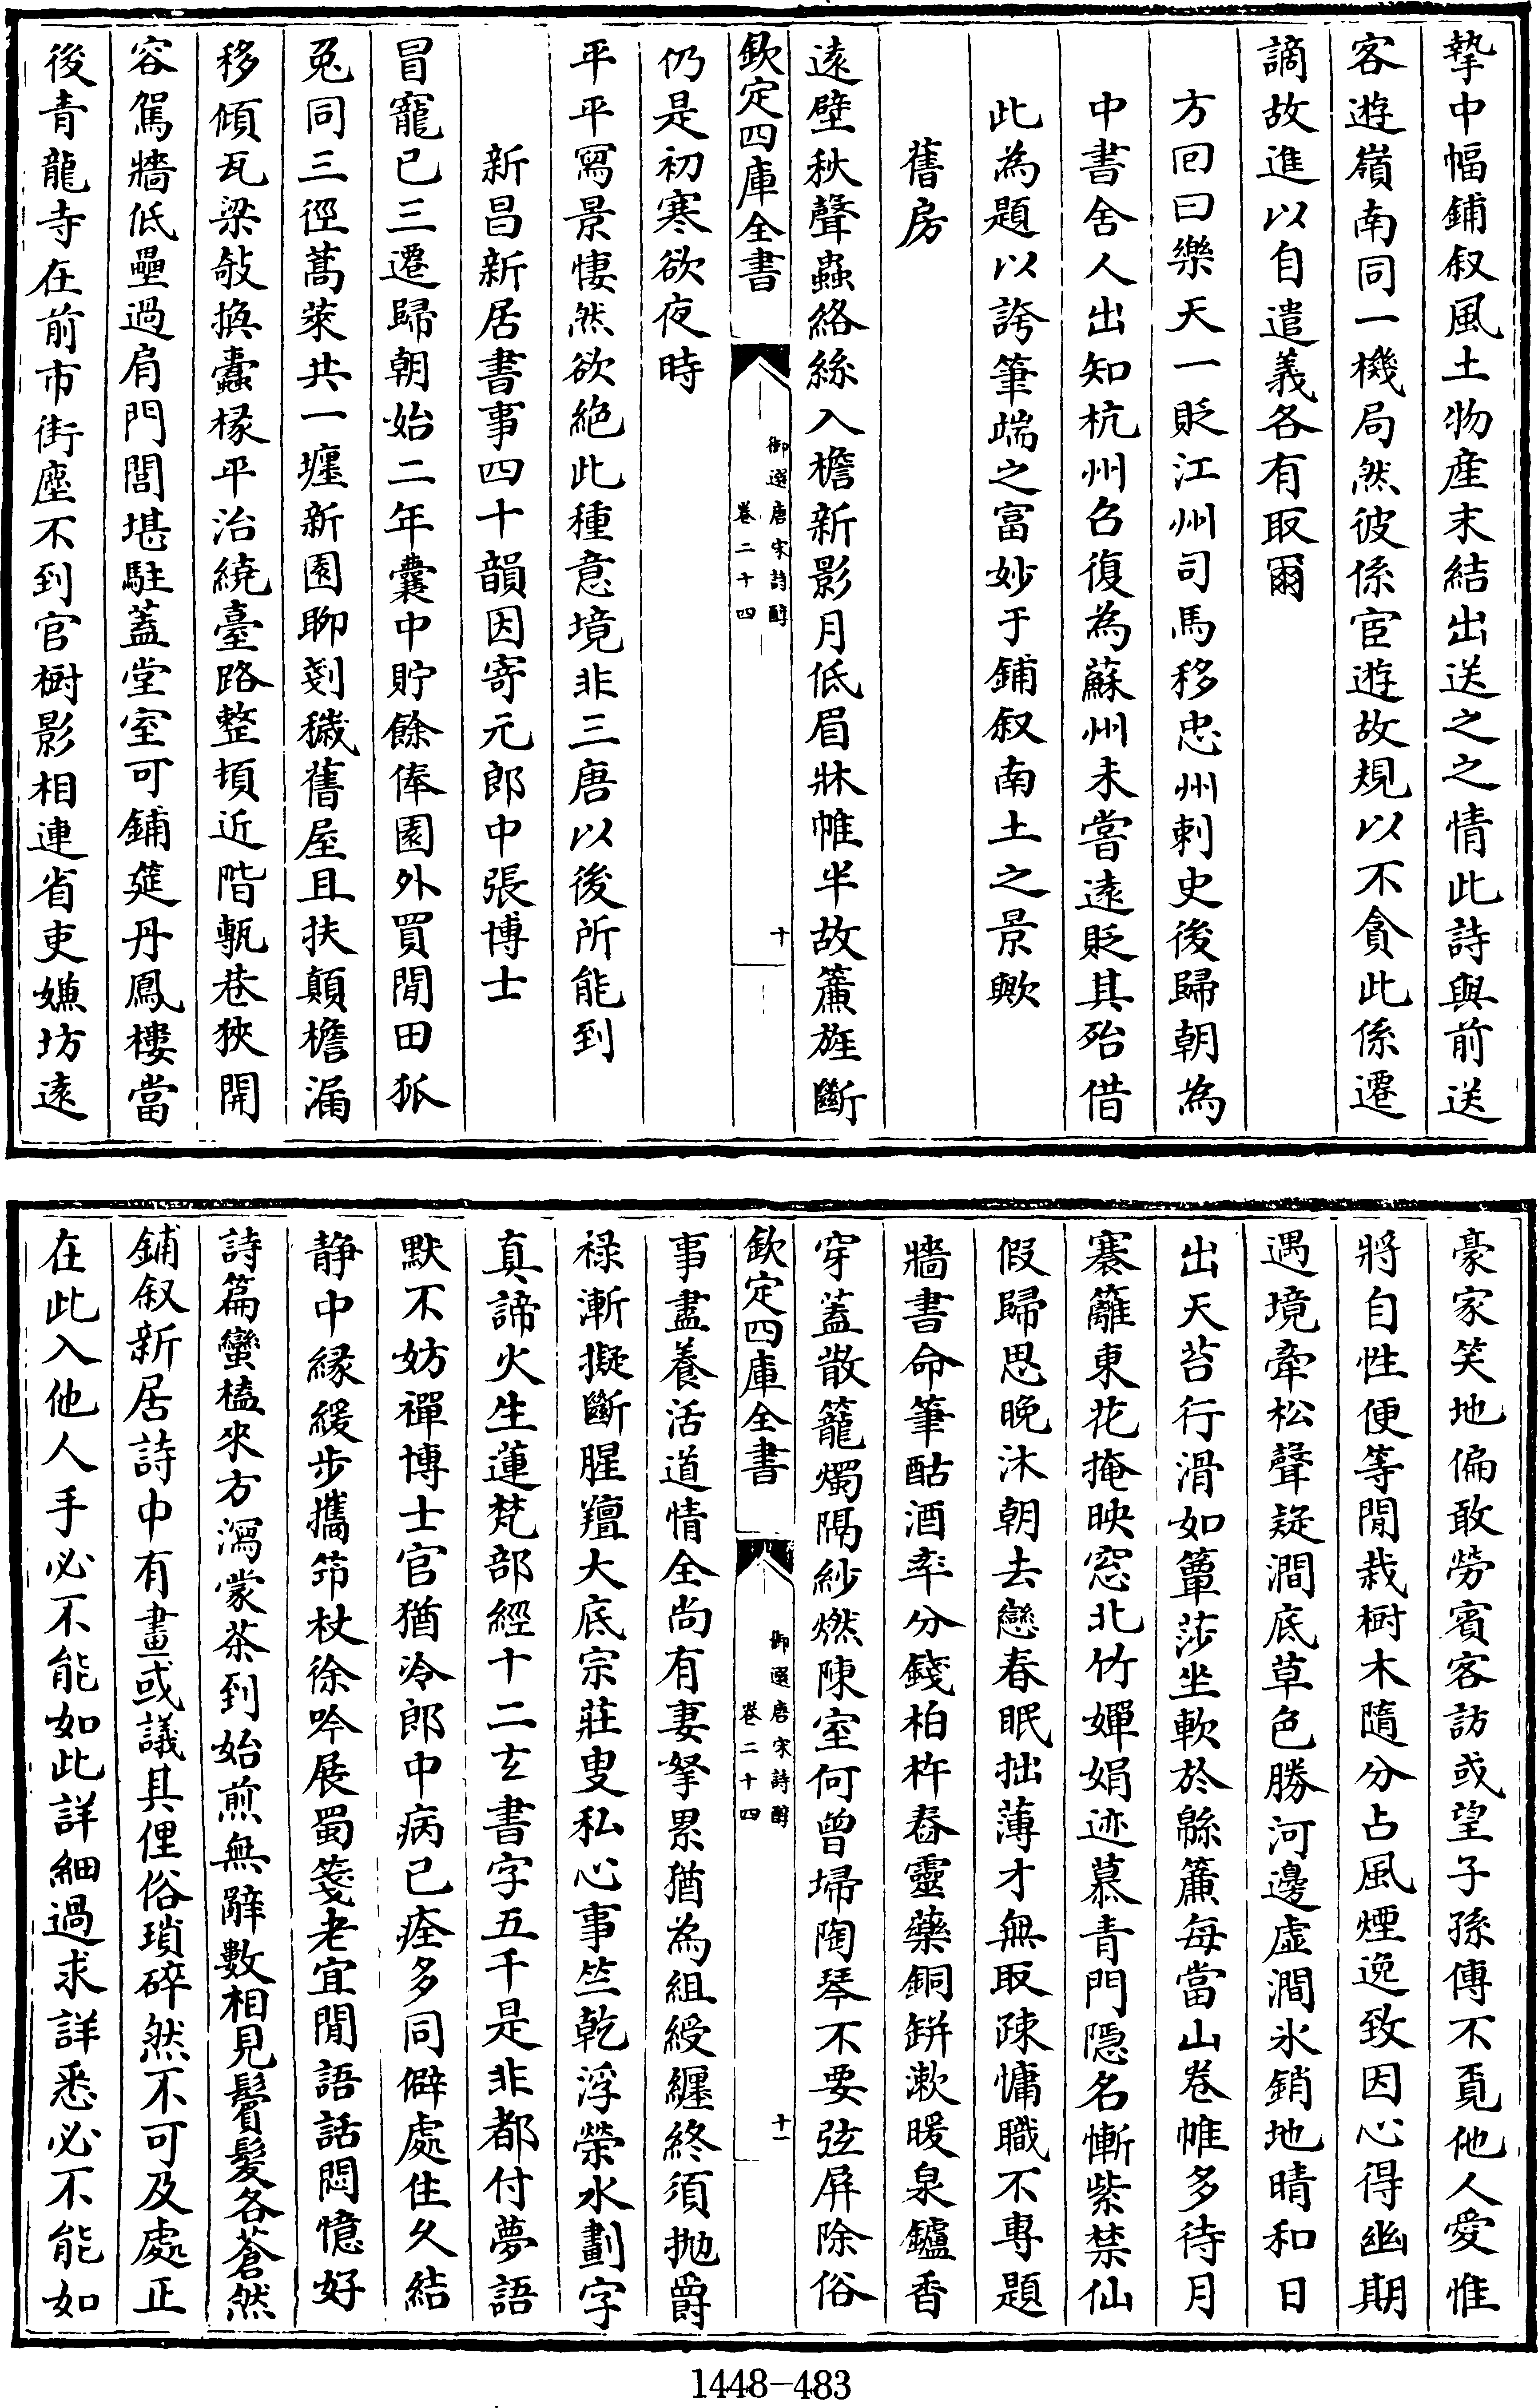 摯中幅鋪叙風土物産末結出送之之情此詩與前送
客遊嶺南同一機局然彼係宦遊故規以不貪此係遷
謫故進以自遣義各有取爾
方回曰樂天一貶江州司馬移忠州刺史後歸朝為
中書舍人出知杭州召復為蘇州未嘗遠貶其殆借
此為題以誇筆端之富妙于鋪叙南土之景歟
舊房
遠壁秋聲蟲絡絲入檐新影月低眉牀帷半故簾旌斷
欽定四庫全書
御選唐宋詩醇
卷二十四
十
仍是初寒欲夜時
平平寫景悽然欲絶此種意境非三唐以後所能到
新昌新居書事四十韻因寄元郎中張博士
冒寵已三遷歸朝始二年囊中貯餘俸園外買閒田狐
兎同三徑蒿萊共一㕓新園聊剗穢舊屋且扶顛檐漏
移傾瓦梁敧換蠹椽平治繞臺路整頓近階甎巷狹開
容駕牆低壘過肩門閭堪駐蓋堂室可鋪筵丹鳳樓當
後青龍寺在前市街塵不到官樹影相連省吏嫌坊遠
豪家笑地偏敢勞賓客訪或望子孫傳不覔他人愛惟
將自性便等閒栽樹木隨分占風煙逸致因心得幽期
遇境牽松聲疑澗底草色勝河邊虛澗氷銷地晴和日
出天苔行滑如簟莎坐軟於緜簾每當山卷帷多待月
褰籬東花掩映窓北竹嬋娟迹慕青門隠名慚紫禁仙
假歸思晚沐朝去戀春眠拙薄才無取疎慵職不専題
牆書命筆酤酒率分錢柏杵舂靈藥銅缾漱暖泉鑪香
穿蓋散籠燭隔紗燃陳室何曾埽陶琴不要弦屏除俗
欽定四庫全書
御選唐宋詩醇
卷二十四
十一
事盡養活道情全尚有妻孥累猶為組綬纏終須拋爵
禄漸擬斷腥羶大底宗莊叟私心事竺乾浮榮水劃字
真諦火生蓮梵部經十二玄書字五千是非都付夢語
默不妨禪博士官猶冷郎中病已痊多同僻處住久結
静中縁緩步攜笻杖徐吟展蜀箋老宜閒語話悶憶好
詩篇蠻榼來方瀉蒙茶到始煎無辭數相見鬢髮各蒼然
鋪叙新居詩中有畫或議其俚俗瑣碎然不可及處正
在此入他人手必不能如此詳細過求詳悉必不能如
1448-483